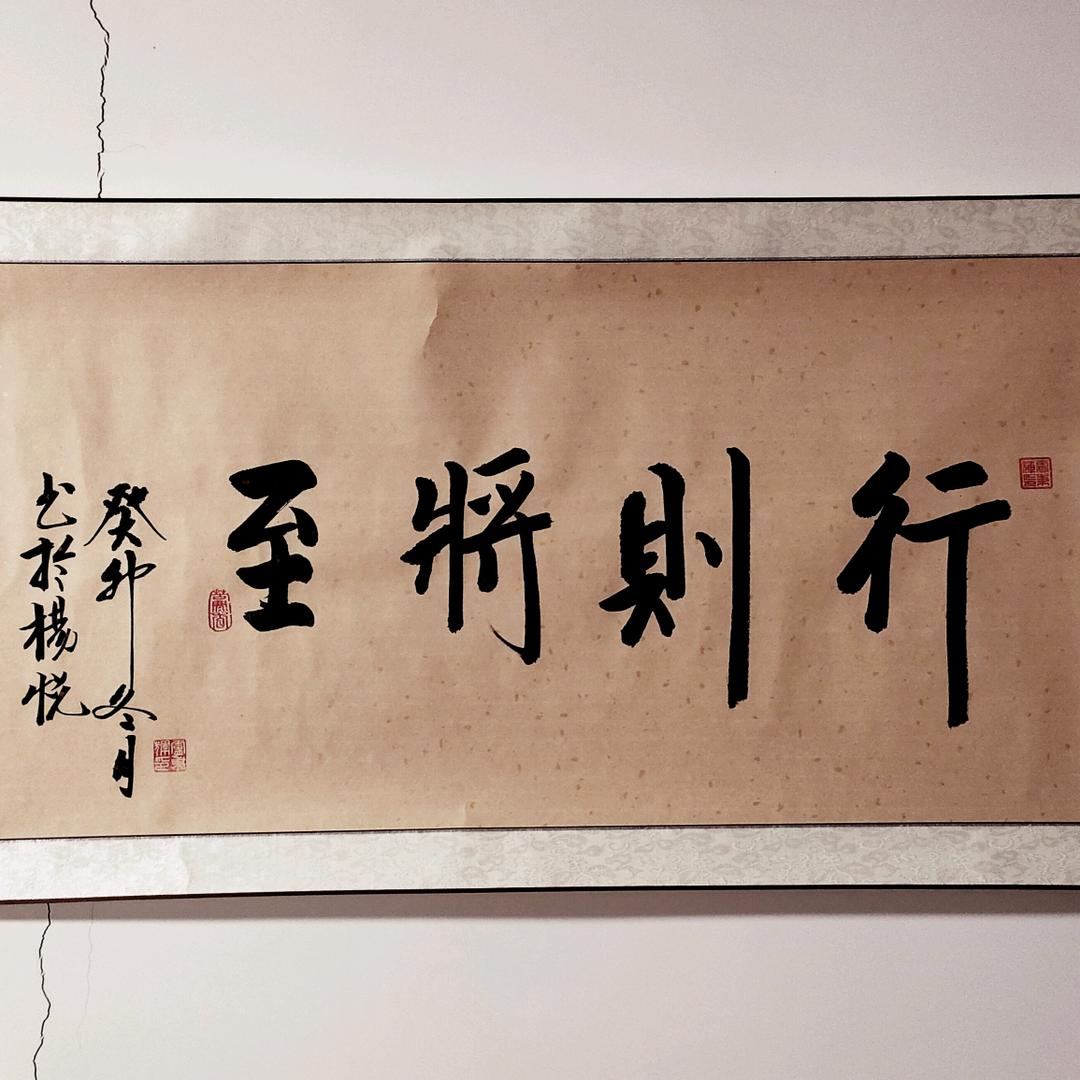 行則將至
癸卯冬月
书於楊悦